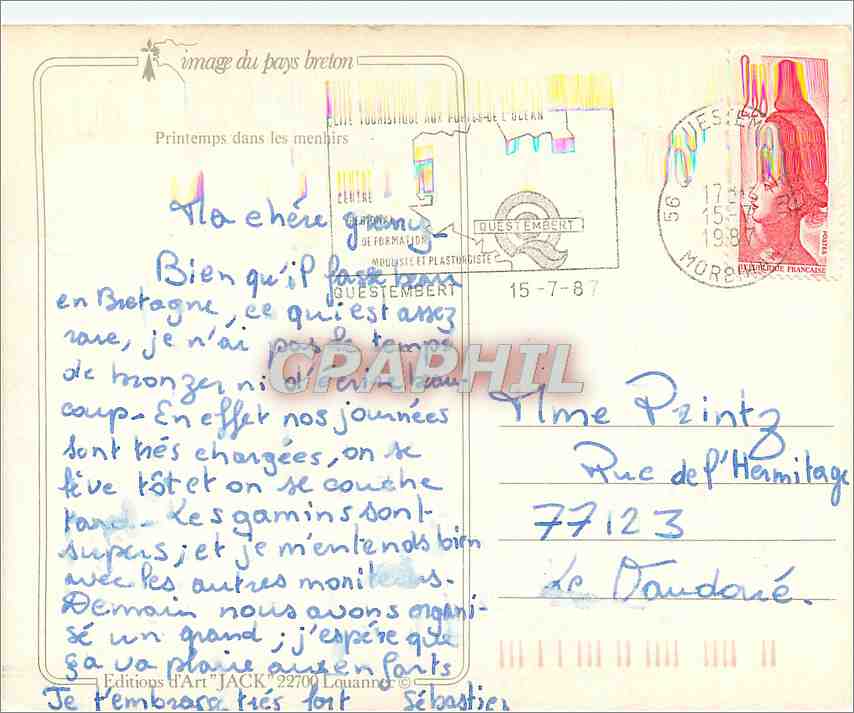 image du pays breton
Printemps dans les menhirs
CITE TOURISTIQUE AUX PORTES DE L'OCEAN
CENTRE
REGIONAL
DE FORMATION
MOULISTE ET PLASTURGISTE
QUESTEMBERT
QUESTEMBERT
15-7-87
QUESTEMBERT
15-7
1987
56
MORBIHAN
POSTES
REPUBLIQUE FRANCAISE
Ma chére
Bien qu'il fasse beau
en Bretagne, ce qui est assez
rare, je n'ai pas le temps
de bronzer ni d'écrire beau-
coup. En effet nos journées
sont trés chargées, on se
lève tôt et on se couche
tard. Les gamins sont
supers, et je m'entends bien
avec les autres moniteurs.
Demain nous avons organi-
sé un grand ; j'espére que
ça va plaire aux enfants
Je t'embrasse trés fort Sébastien
Editions d'Art "JACK" 22700 Louannec ©
CPAPHIL
Mme Printz
Rue de l'Hermitage
77123
Le Vaudoué.